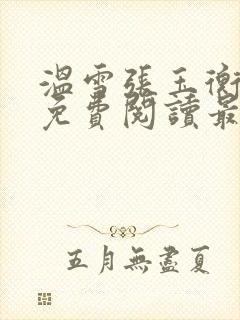 溫雪張玉衡
免費閱讀最
五月無盡夏